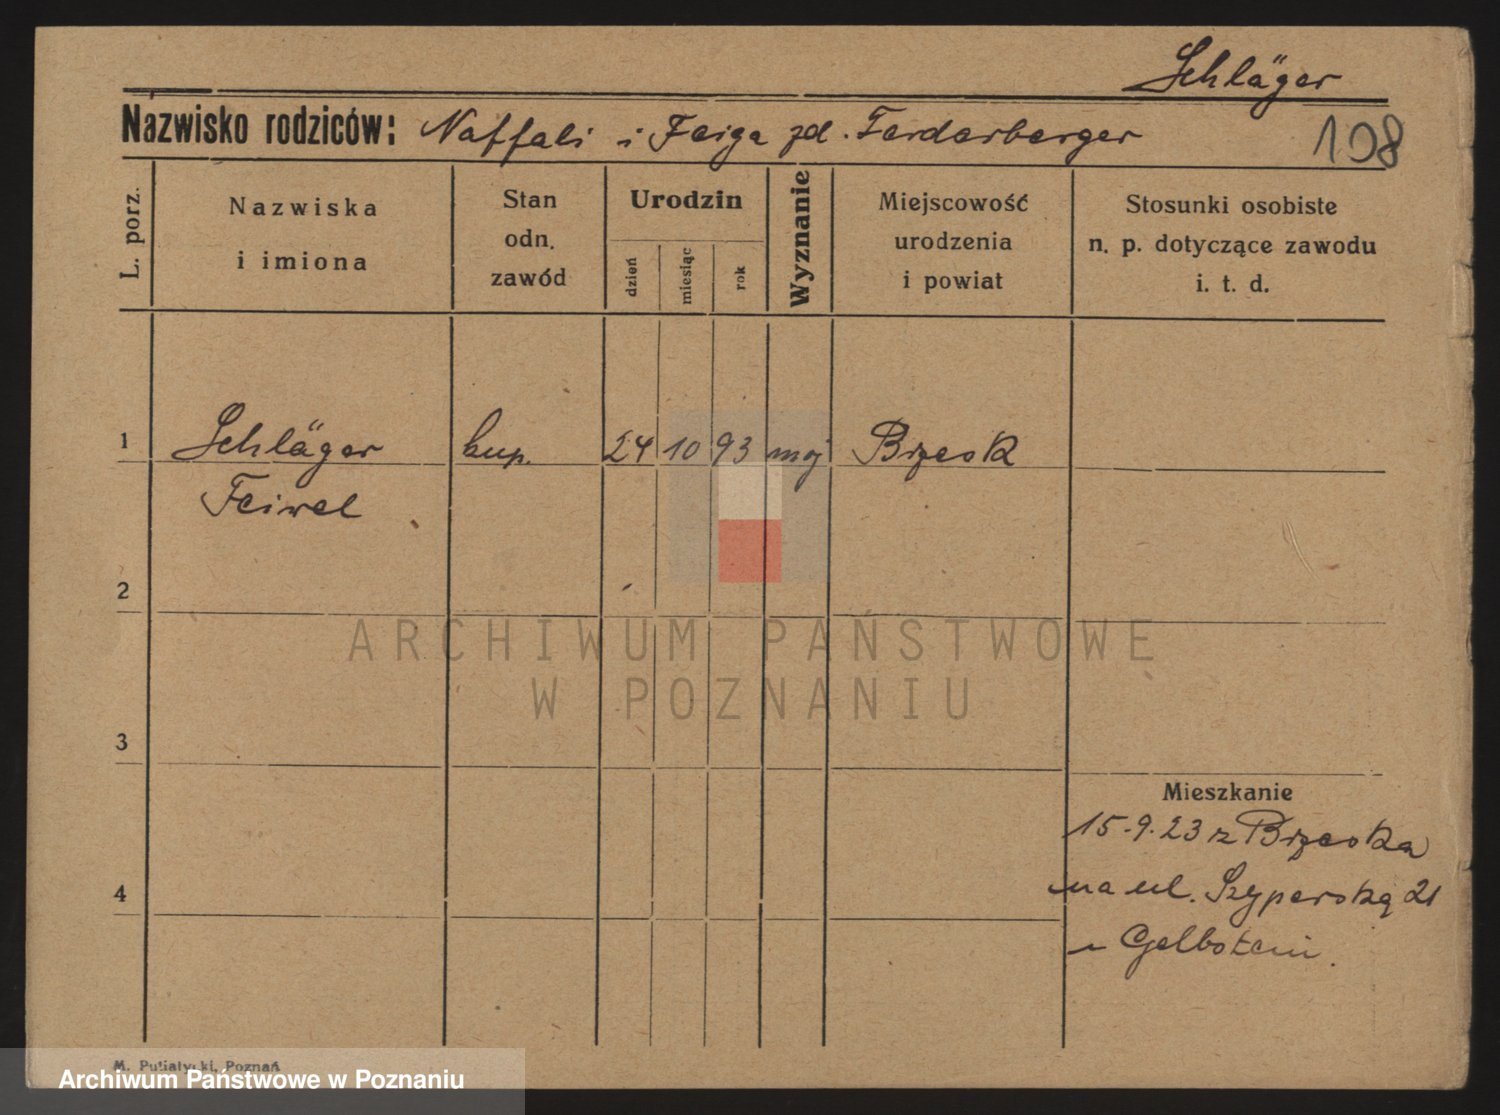 Schläger
Nazwisko rodziców: Naftali i Feiga zd. Ferderberger
198
L. porz.
Nazwiska
i imiona
Stan
odn.
zawód
Urodzin
dzień
miesiąc
rok
Wyznanie
Miejscowość
urodzenia
i powiat
Stosunki osobiste
n. p. dotyczące zawodu
i. t. d.
1 Schläger kup. 24 10 93 moj Brzesk
Feiwel
2
ARCHIWUM PAŃSTWOWE
W POZNANIU
3
Mieszkanie
15.9.23 z Brzeska
4
na ul. Szyperską 21
u
M. Putiatycki, Poznań
Archiwum Państwowe w Poznaniu